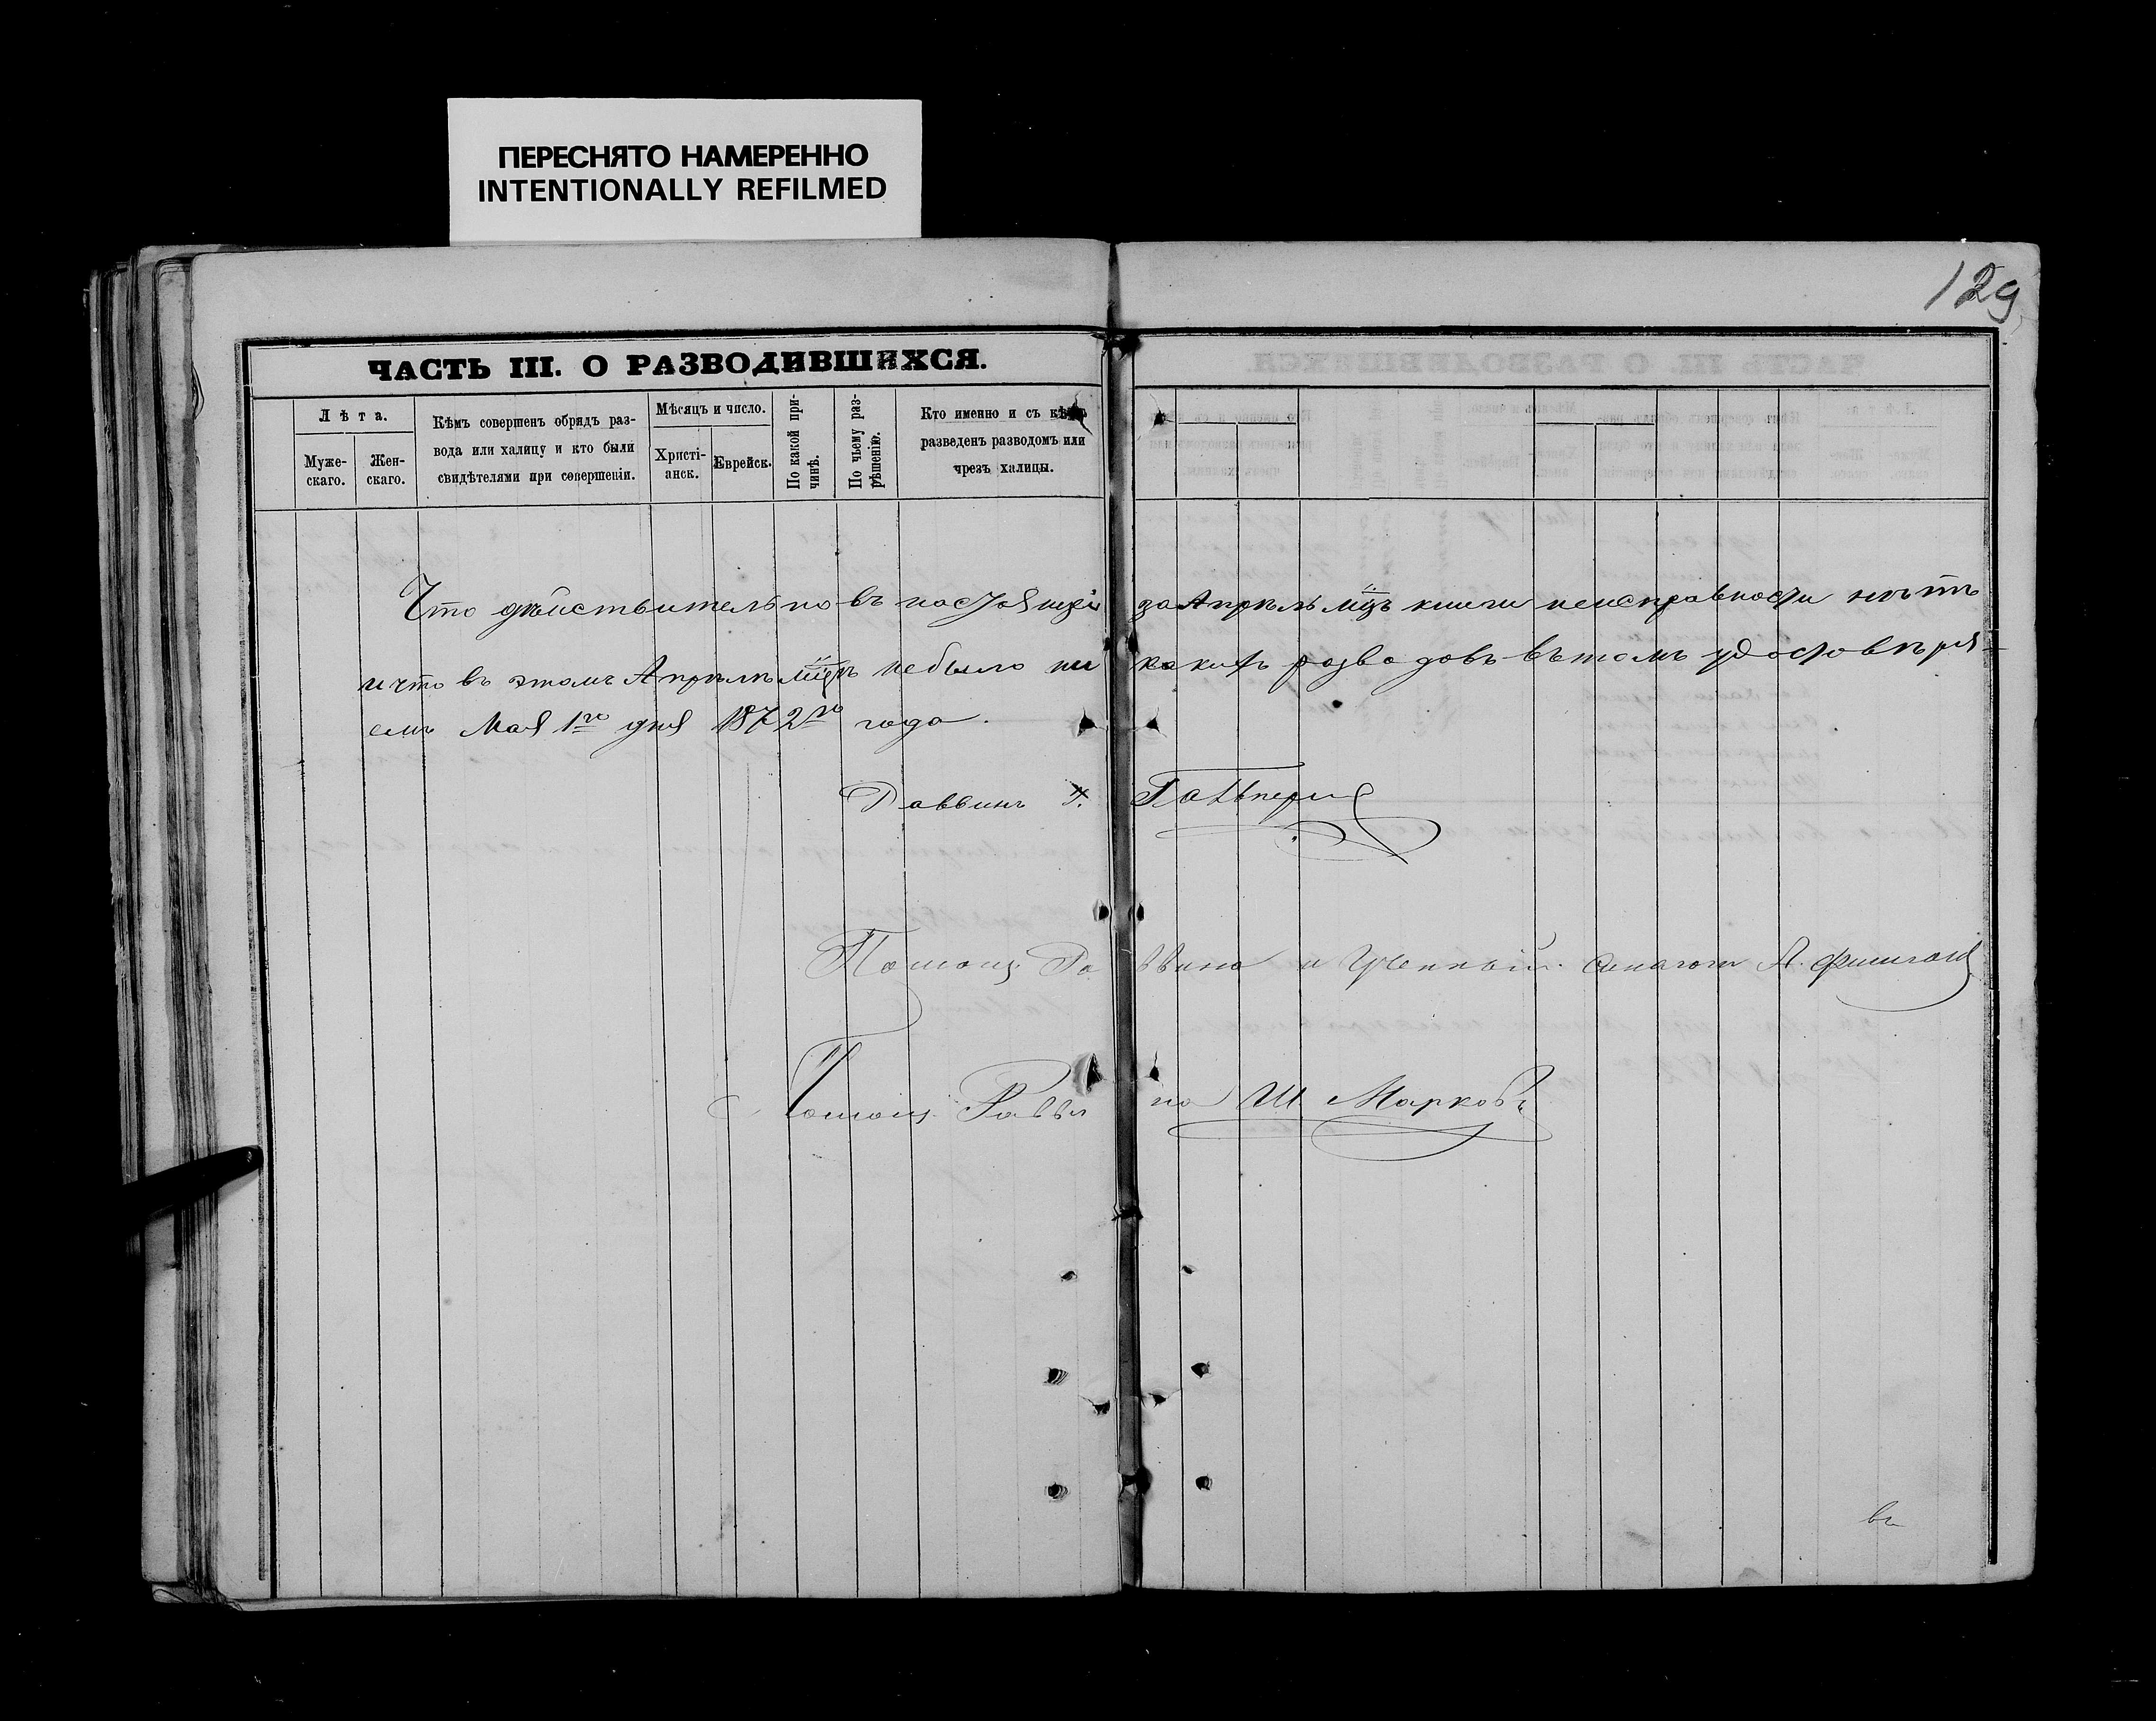 ПЕРЕСНЯТО НАМЕРЕННО
INTENTIONALLY REFILMED
129
ЧАСТЬ III. О РАЗВОДИВШИХСЯ.
Лѣта.
Муже-
скаго.
Жен-
скаго.
Кѣмъ совершенъ обрядъ раз-
вода или халицу и кто были
свидѣтелями при совершеніи.
Мѣсяцъ и число.
Христі-
анск.
Еврейск.
По какой при-
чинѣ.
По чьему раз-
рѣшенію.
Кто именно и съ кѣмъ
разведенъ разводомъ или
чрезъ халицы.
Что дѣйствительно въ настоящей за Апрѣль мцъ книги неисправности нѣтъ
и что въ этомъ Апрѣлѣ мцѣ небыло ни какихъ разводовъ въ томъ удостовѣря-
емъ Мая 1го дня 1872го года.
Раввинъ
Помощ. Раввина и Ученный синагоги
Помощ. Раввина Ш. Марковъ